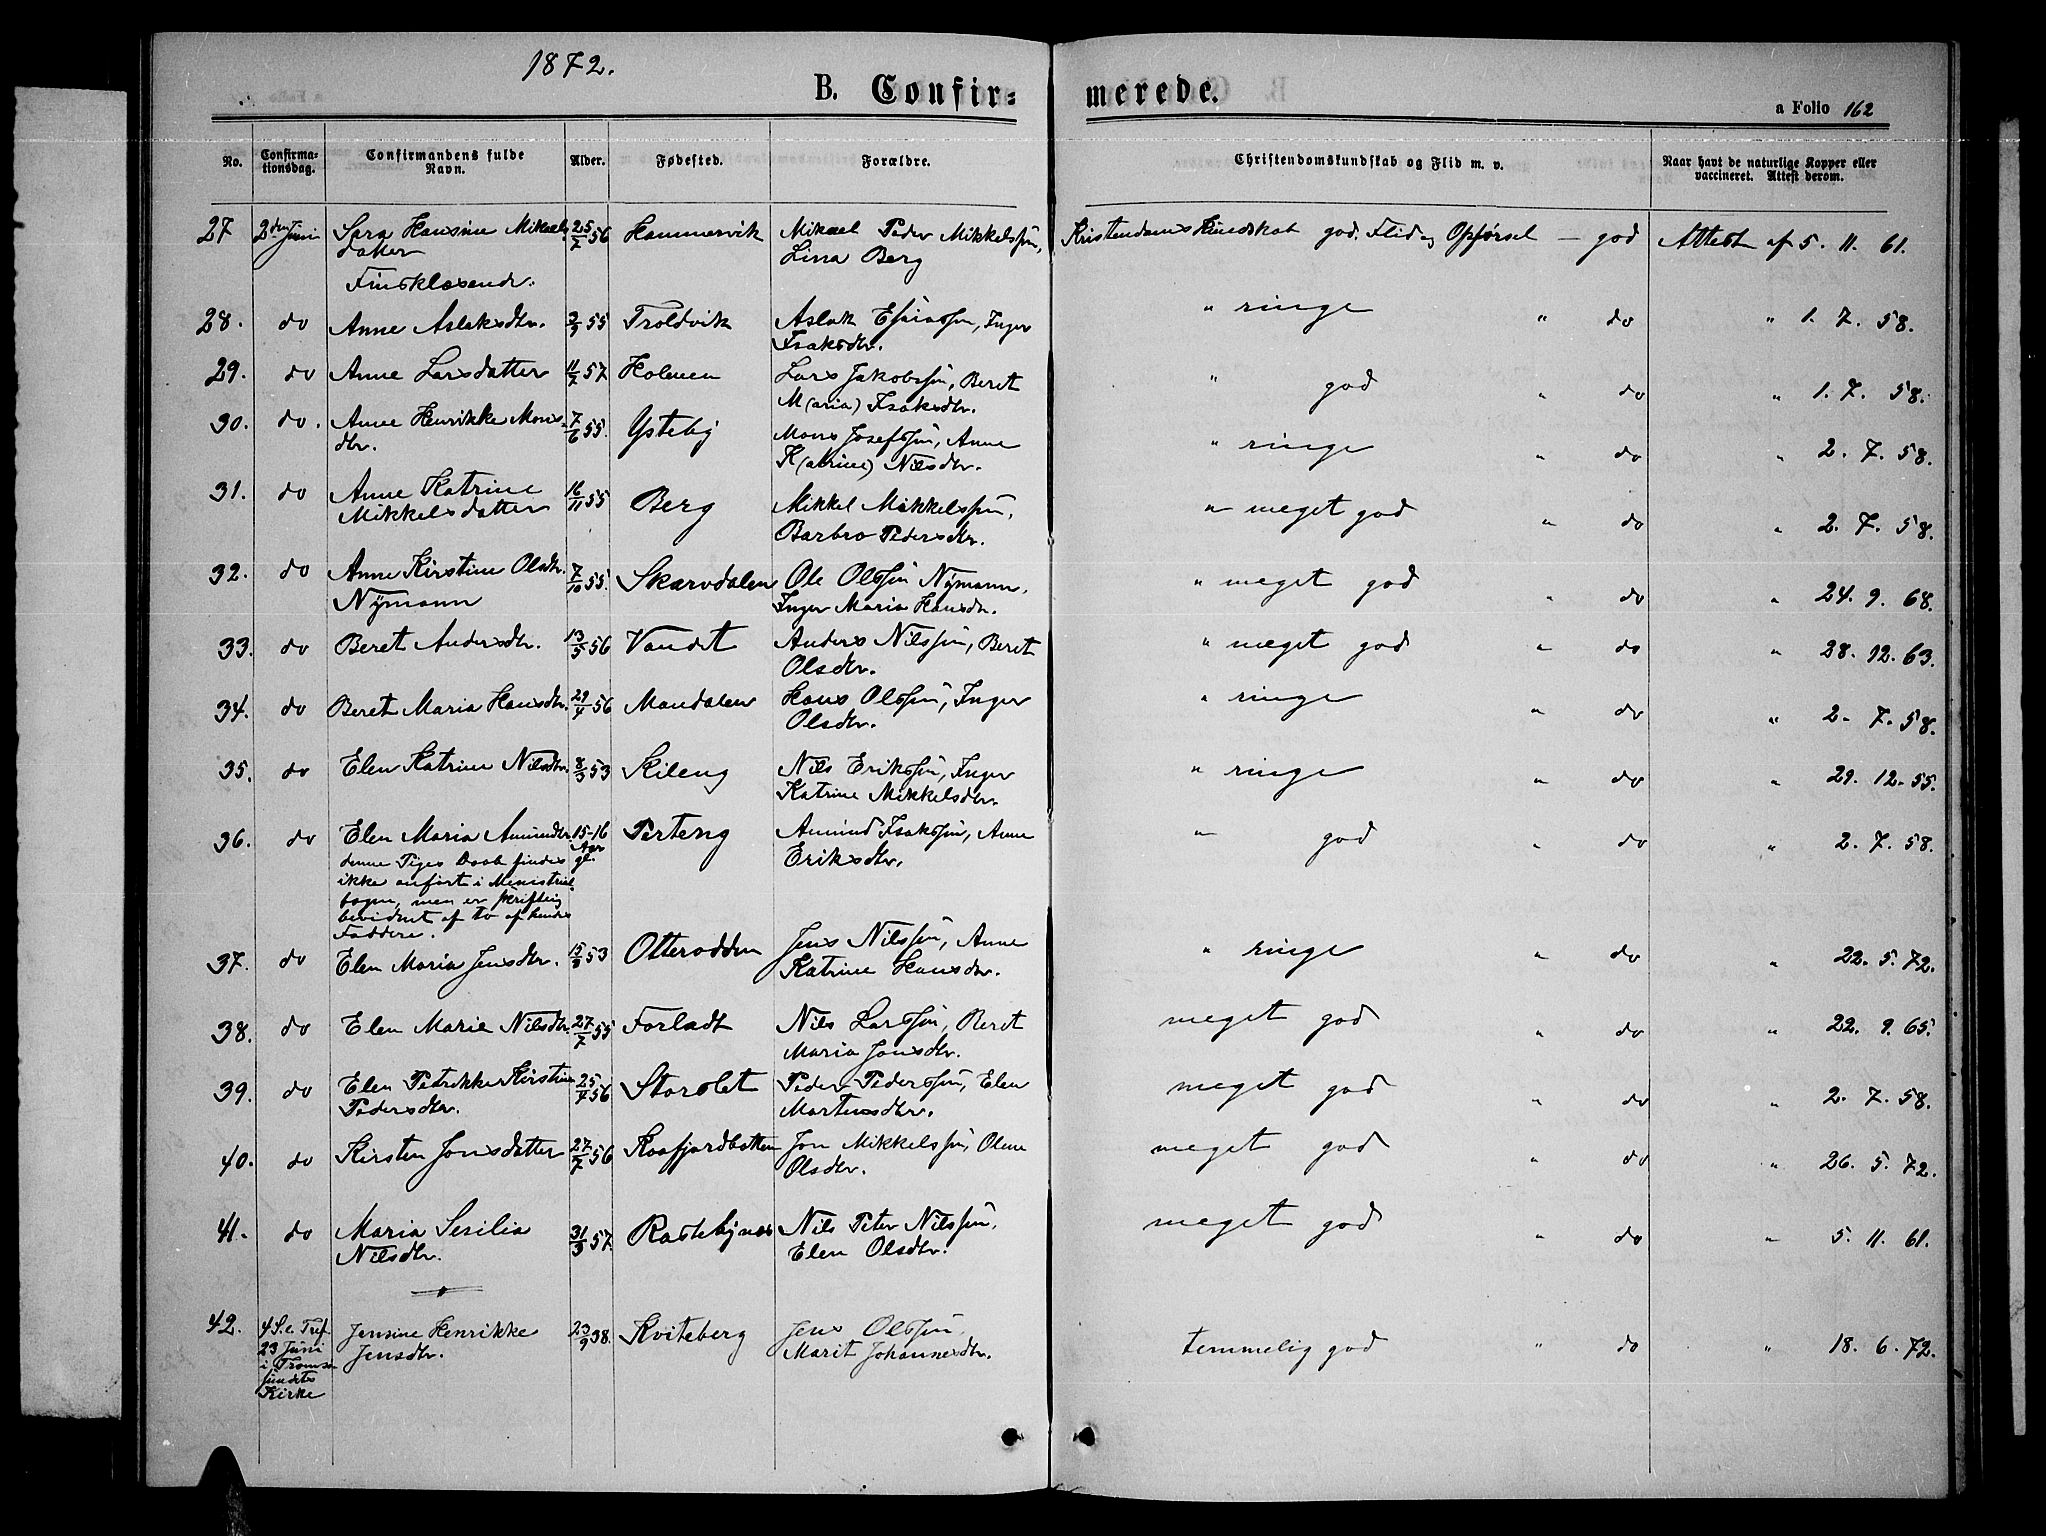 1872.
B. Confirmerede.
a Folio 162
No.
Confirmationsdag.
Confirmandens fulde Navn.
Alder.
Fødested.
Forældre.
Christendomskundskab og Flid m. v.
Naar havt de naturlige Kopper eller vaccineret. Attest derom.
27 2den Juni Sara Hansine Mikaels 25/7 56 Hammervik Mikael Peder Mikkelssøn, Kristendoms Kundskab god. Flid og Opførsel — god Attest af 5. 11. 61.
datter Lina Berg
Finsklæsende.
28. do Anne Aslaksdtr. 55 Troldvik Aslak Esaiassøn, Inger " ringe " do " 1. 7. 58.
Isaksdtr.
29. do Anne Larsdatter 57 Holmen Lars Jakobssøn, Beret " god " do " 1. 7. 58.
M(aria) Isaksdtr.
30. do. Anne Henrikke Mons- 7/6 55. Ysteby Mons Josefssøn, Anne " ringe " do " 2. 7. 58.
dtr. K(atrine) Nilsdtr.
31. do Anne Katrine 16/11 55 Berg Mikkel Mikkelssøn, " meget god " do " 2. 7. 58.
Mikkelsdatter Barbro Pedersdtr.
32. do Anne Kirstine Olsdtr. 7/10 55. Skarvdalen Ole Olssøn Nymann, " meget god " do " 24. 9. 68.
Nymann Inger Maria Hansdtr.
33. do Beret Andersdtr. 13/5 56 Vandet Anders Nilssøn, Beret " meget god " do " 28. 12. 63.
Olsdtr.
34. do Beret Maria Hansdtr. 29/4 56 Mandalen Hans Olssøn, Inger " ringe " do " 2. 7. 58.
Olsdtr.
35. do Elen Katrine Nilsdtr. 8/3 53 Skileng Nils Erikssøn, Inger " ringe " do " 29. 12. 55.
Katrine Mikkelsdtr.
36. do Elen Maria Amundsdtr. 15-16 Perteng Amund Isakssøn, Anne " god " do " 2. 7. 58.
denne Piges Daab findes Aar gl. Eriksdtr.
ikke anført i Ministerial
bogen, men er skriftlig
bevidnet af to af hendes
Faddere.
37. do Elen Maria Jensdtr. 53 Otterodden Jens Nilssøn, Anne " ringe " do " 22. 5. 72.
Katrine Hansdtr.
38. do Elen Marie Nilsdtr. 27/7 55 Forladt Nils Larssøn, Beret meget god " do " 22. 9. 65.
Maria Jonsdtr.
39. do Elen Petrikke Kirstine 56 Storslet Peder Pederssøn, Elen meget god " do " 2. 7. 58.
Pedersdtr. Mortensdtr.
40. do Kirsten Jonsdatter 27/7 56 Kaafjordbotten Jon Mikkelssøn, Olene meget god " do " 26. 5. 72.
Olsdtr.
41. do Maria Sesilia 31/3 57. Rastebynes Nils Peter Nilssøn, meget god " do " 5. 11. 61.
Nilsdtr. Elen Olsdtr.
42. 4 S. e. Tref. Jensine Henrikke 23/9 38. Kviteberg Jens Olssøn, temmelig god " do " 18. 6. 72.
23 Juni Jensdtr. Marit Johannesdtr.
i Tromsø
sundets
Kirke